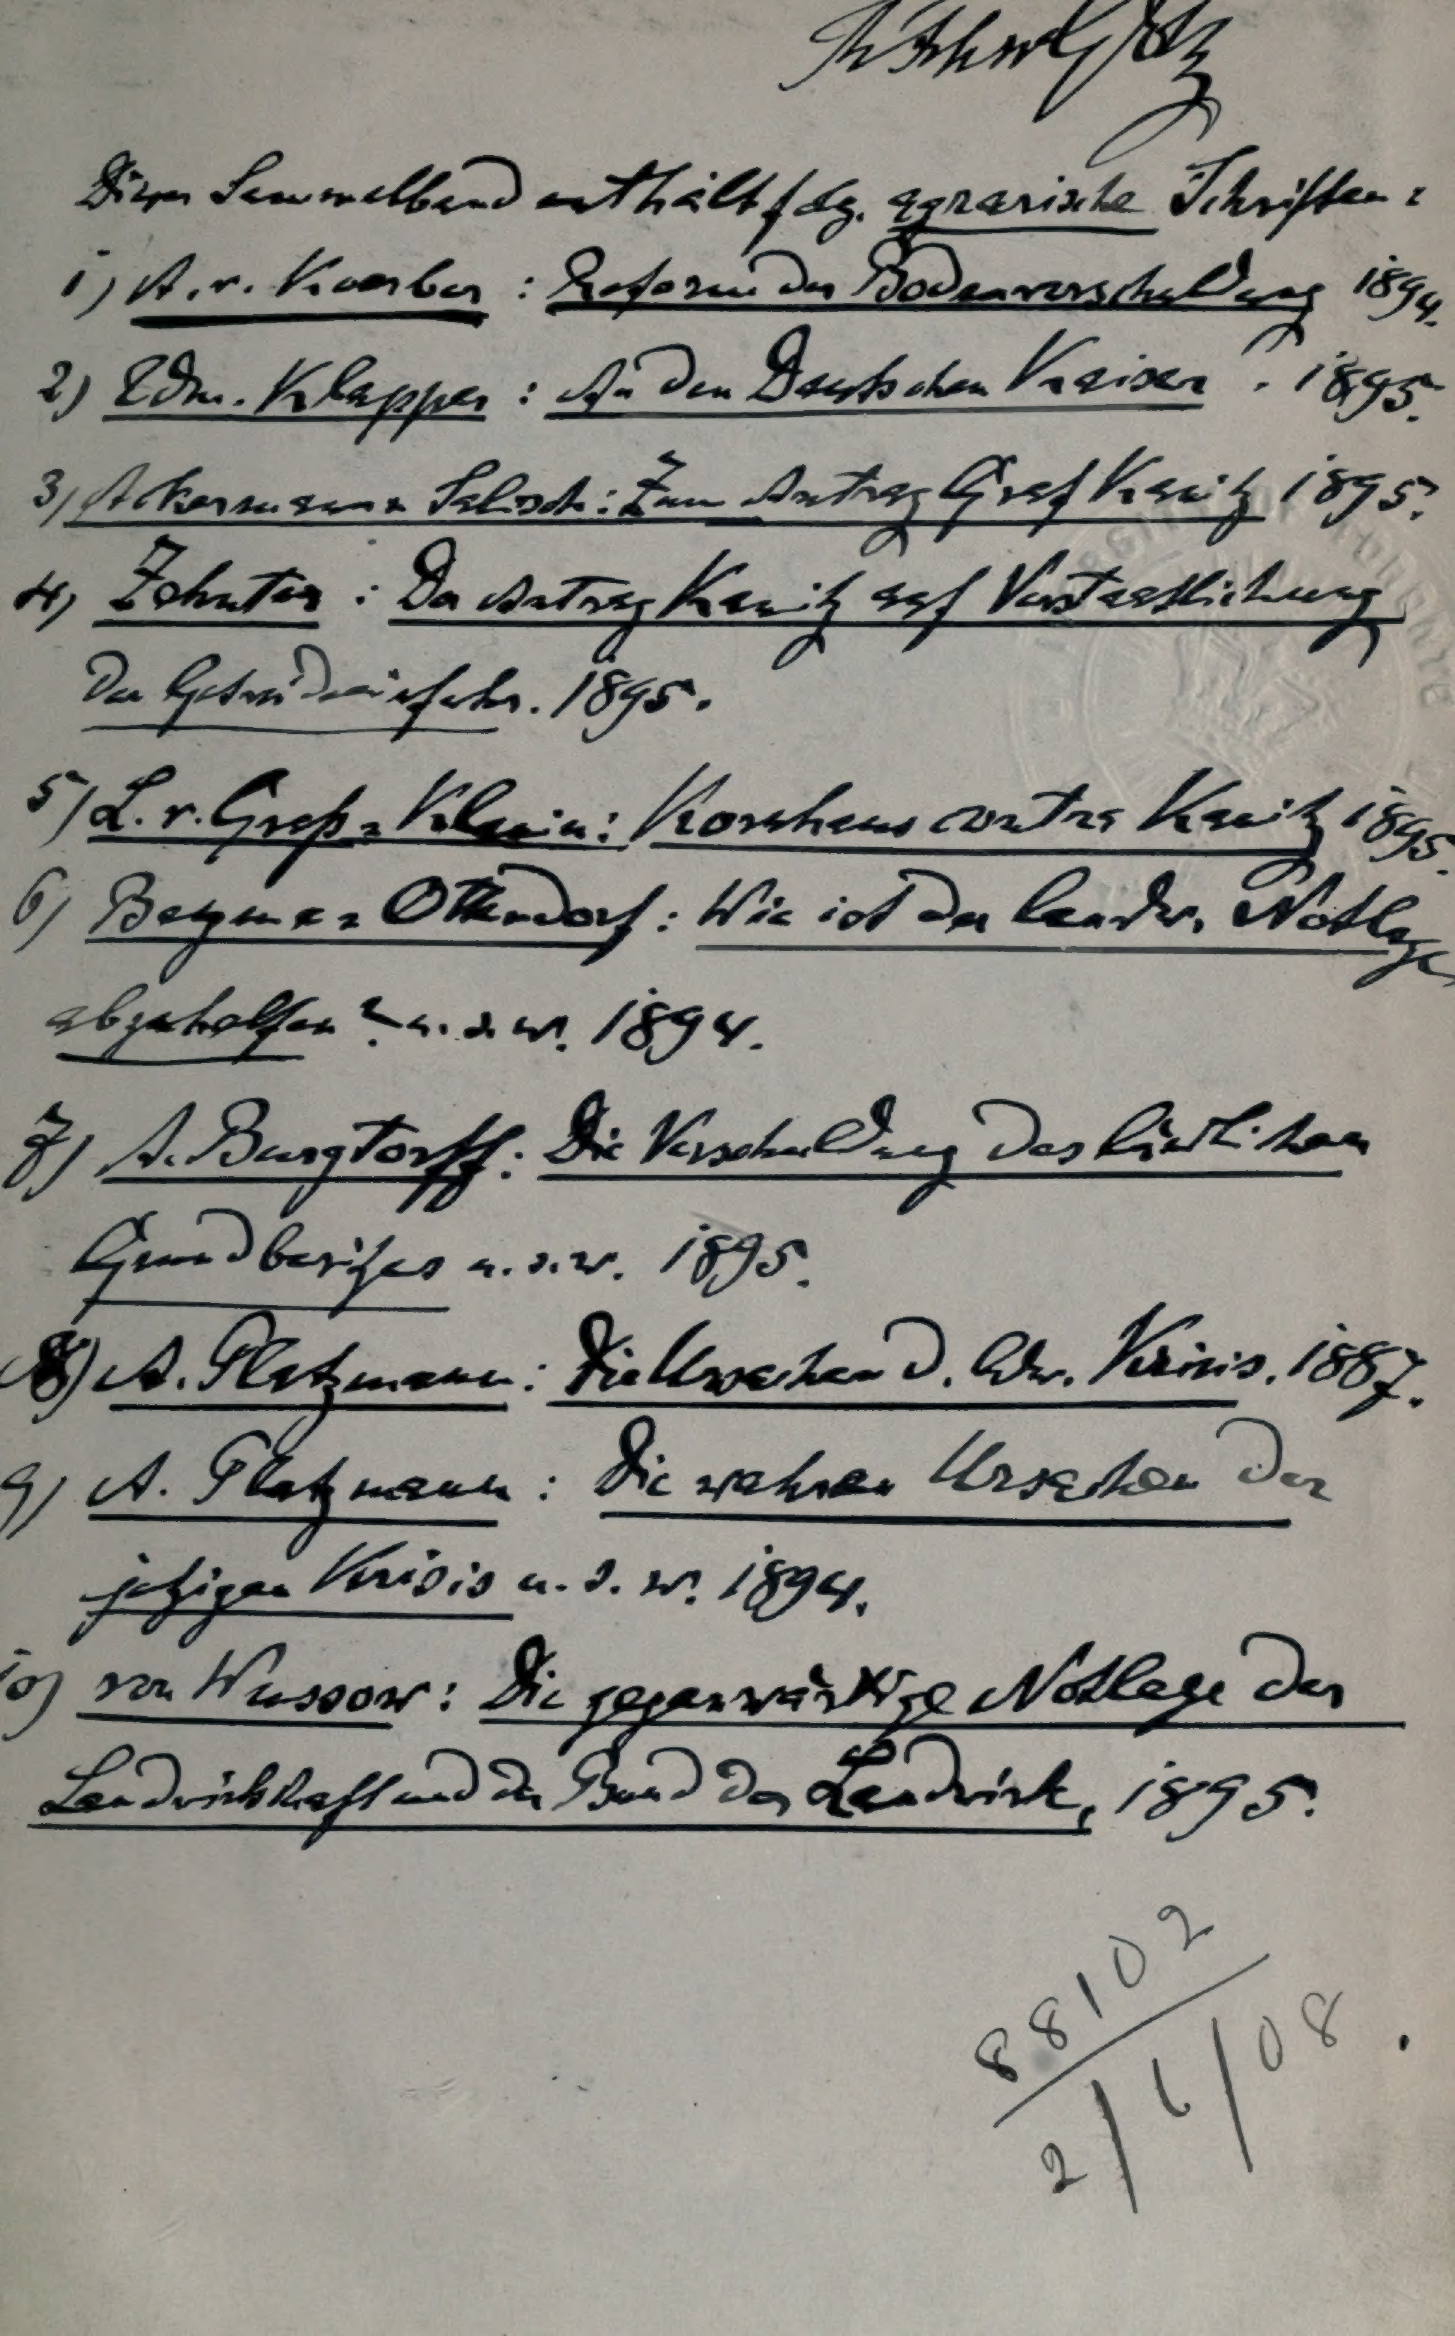 Dieser Sammelband enthält folg. agrarische Schriften:
1) A. v. Koerber: Reform der Bodenverschuldung 1894.
2) Edm. Klapper: An den Deutschen Kaiser. 1895.
3) Ackermann-Salisch: Zum Antrag Graf Kanitz 1895.
4) Zehnter: Der Antrag Kanitz auf Verstaatlichung
der Getreideeinfuhr. 1895.
5) L. v. Graß-Klanin: Kornhaus contra Kanitz 1895.
6) Ottendorf: Wie ist der landw. Notlage
abzuhelfen? u.s.w. 1894.
7) A. Burgtorff: Die Verschuldung des ländlichen
Grundbesitzes u.s.w. 1895.
8) A. Platzmann: Die Ursachen d. ldw. Krisis. 1887.
9) A. Platzmann: Die wahren Ursachen der
jetzigen Krisis u.s.w. 1894.
10) von Wussow: Die gegenwärtige Notlage der
Landwirtschaft und der Bund der Landwirte, 1895.
88102
2/6/08